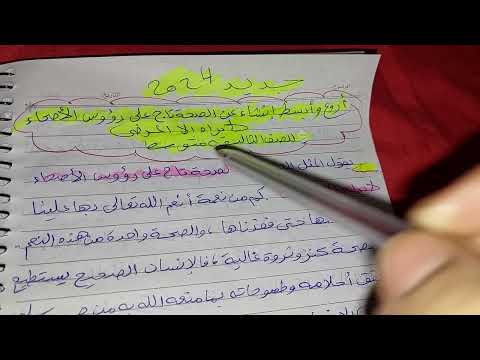 جديد 2024
أروع وأبسط إنشاء عن الصحة تاج على رؤوس الأصحاء
لا يراه إلا المرضى
للصف الثالث متوسط
يقول المثل الصحة تاج على رؤوس الأصحاء
كم من نعمة أنعم الله تعالى بها علينا
ها حتى فقدناها، والصحة واحدة من هذه النعم
صحة كنز وثروة غالية، فالإنسان الصحيح يستطيع
أحلامه وطموحاته بما متعه الله به من